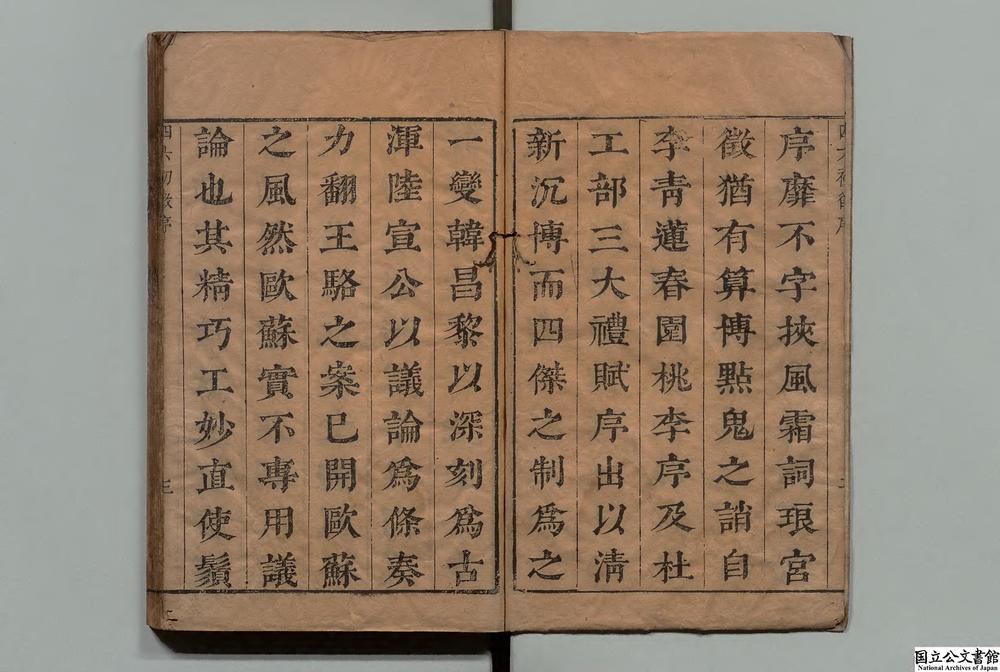 序靡不字挾風霜詞琅宮
徵猶有算博㸃鬼之誚自
李青蓮春園桃李序及杜
工部三大禮賦序出以淸
新沉博而四傑之制爲之
一變韓昌黎以深刻爲古
渾陸宣公以議論爲條奏
力翻王駱之案已開歐蘇
之風然歐蘇實不專用議
論也其精巧工妙直使鬚
三
国立公文書館
National Archives of Japan